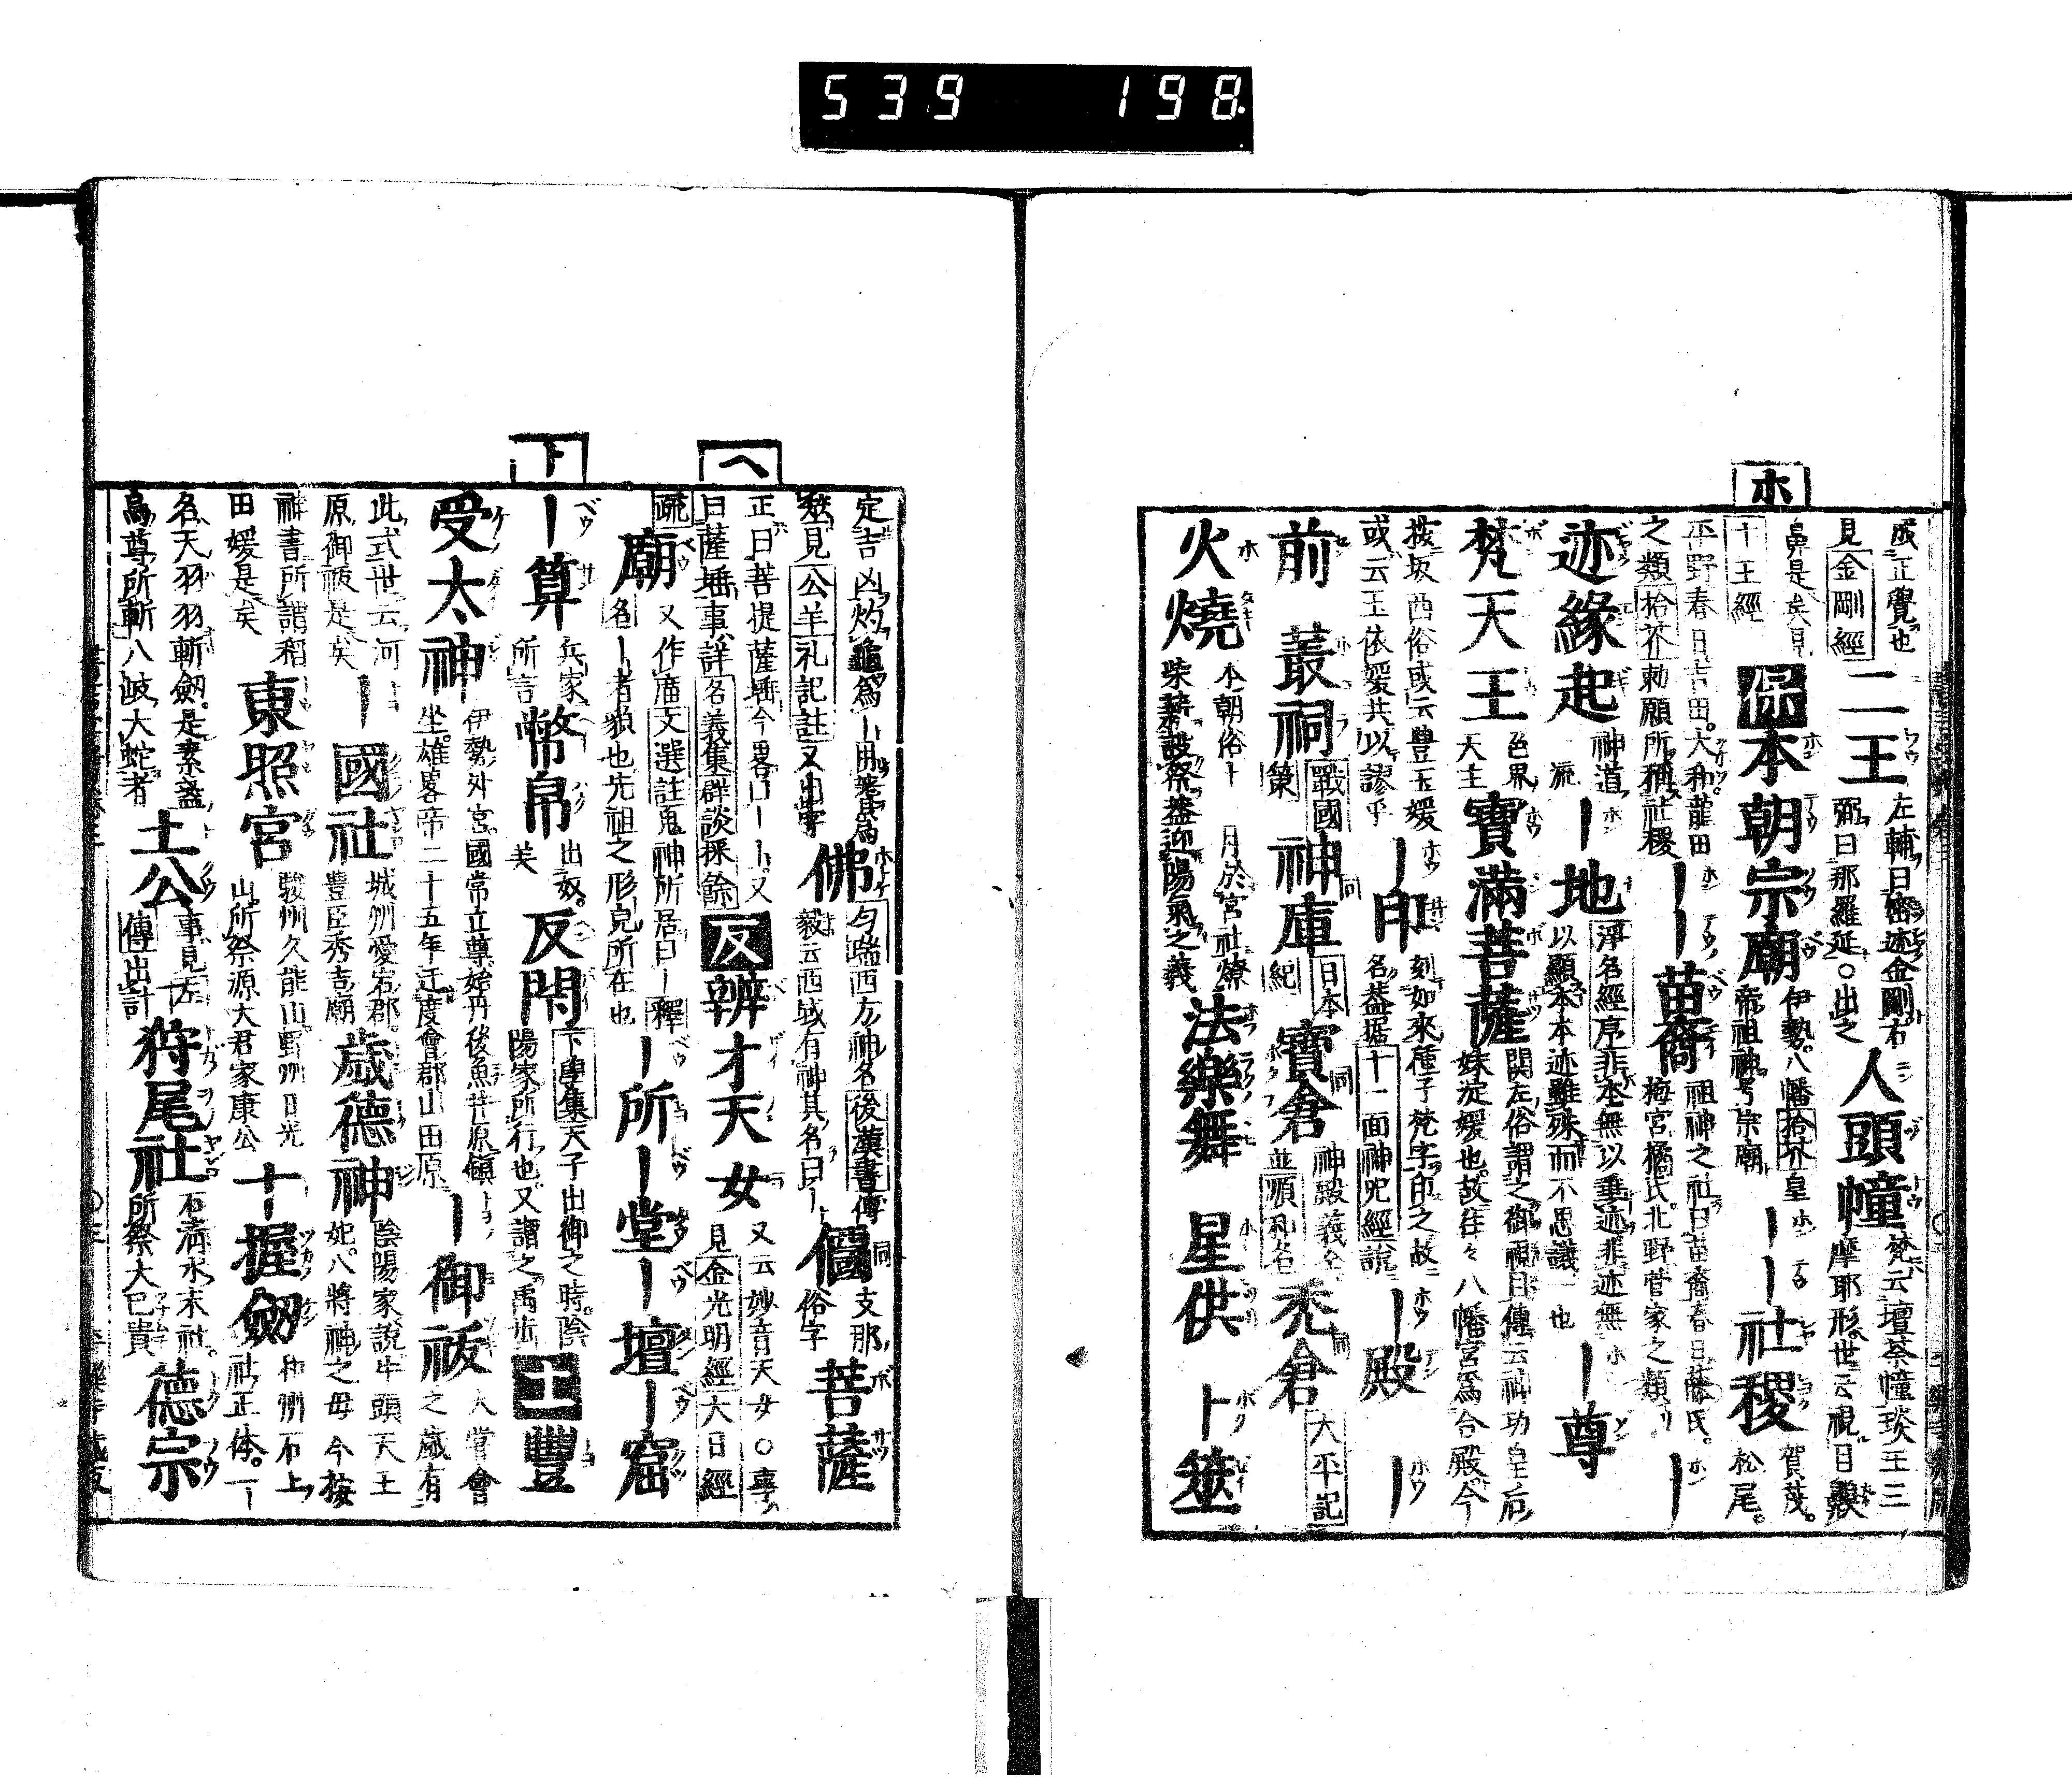 539 198
成正覺也
見金剛經
二王
左輔曰密迹金剛右
弼曰那羅延○出之
人頭幢
梵云壇荼幢琰王三
摩耶形世云視目
鼻是矣見
十王經
ホ
本朝宗廟
伊勢八幡拾芥皇
帝祖神号宗廟
丨丨社稷
賀茂
松尾
平野春日吉田大和龍田
之類拾芥勅願所稱社稷
丨丨苗裔
祖神之社曰苗裔春日藤氏
梅宮橘氏北野菅家之類
丨
迹緣起
神道
流
丨地
淨名經序非本無以垂迹非迹無
以顯本本迹雖殊而不思議一也
丨尊
梵天王
色界
天主
寶滿菩薩
関左俗謂之御祖且傳云神功皇后
妹淀媛也故往々八幡宮爲合殿今
按坂西俗或云豊玉媛
或云玉依媛共以謬乎
丨印
刻如來種子梵字印之故
名蓋据十一面神呪經說
丨殿
丨
前
叢祠
戰國
策
神庫
日本
紀
寶倉
神殿義仝
並順和名
禿倉
大平記
火燒
本朝俗丨
月於宮社燎
柴薪奏鼓祭蓋迎陽氣之義
法樂舞
星供
卜筮
定吉凶灼龜爲丨用筮爲
筮見公羊礼記註又出字
佛
匀瑞西方神名後漢書傳
毅云西域有神其名曰丨
同
支那
俗字
菩薩
正曰菩提薩埵今畧曰丨丨又
曰薩埵事詳名義集群談採餘
ヘ
辨才天女
又云妙音天女○事
見金光明經大日經
疏
廟
又作庿文選註鬼神所居曰丨釋
名丨者貌也先祖之形皃所在也
丨所丨堂丨壇丨窟
丨算
兵家
所言
幣帛
出奴
芙
反閇
下學集天子出御之時陰
陽家所行也又謂之禹步
ト
豐
受太神
伊勢外宮國常立尊始丹後魚井原鎮
坐雄畧帝二十五年迁度會郡山田原
丨御祓
大嘗會
之歲有
此式世云河
原御祓是矣
丨國社
城州愛宕郡
豐臣秀吉廟
歲德神
陰陽家說牛頭天王
妃八將神之母今按
神書所謂稻
田媛是矣
東照宮
駿州久能山野州日光
山所祭源大君家康公
十握劔
和州石上
社正体一丨
名天羽羽斬劔是素盞
烏尊所斬八岐大蛇者
土公
事見左
傳出計
狩尾社
石清水末社
所祭大巳貴
德宗